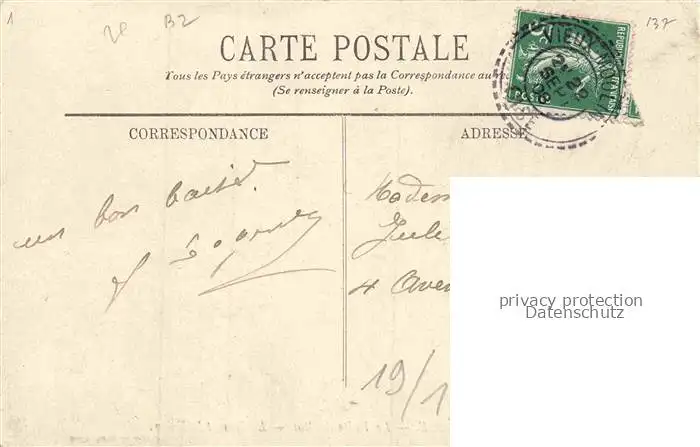 1
28 B2
137
CARTE POSTALE
Tous les Pays étrangers n'acceptent pas la Correspondance au
(Se renseigner à la Poste).
CORRESPONDANCE
ADRESSE
un bon baiser.
Madem
Jule
4 Aven
19/1
privacy protection
Datenschutz